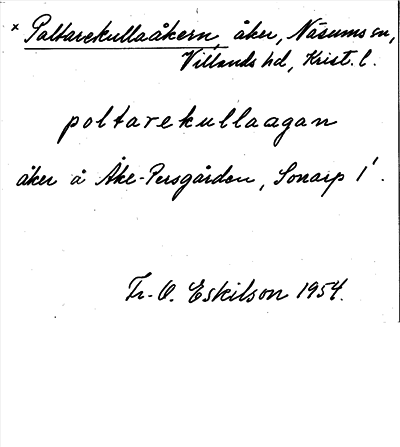 x Poltarekullaåkern, åker, Näsums sn,
Villands hd, Krist. l.
poltarekullaagan
åker å Åke-Persgården, Sonarp 1'.
Fr. O. Eskilson 1954.